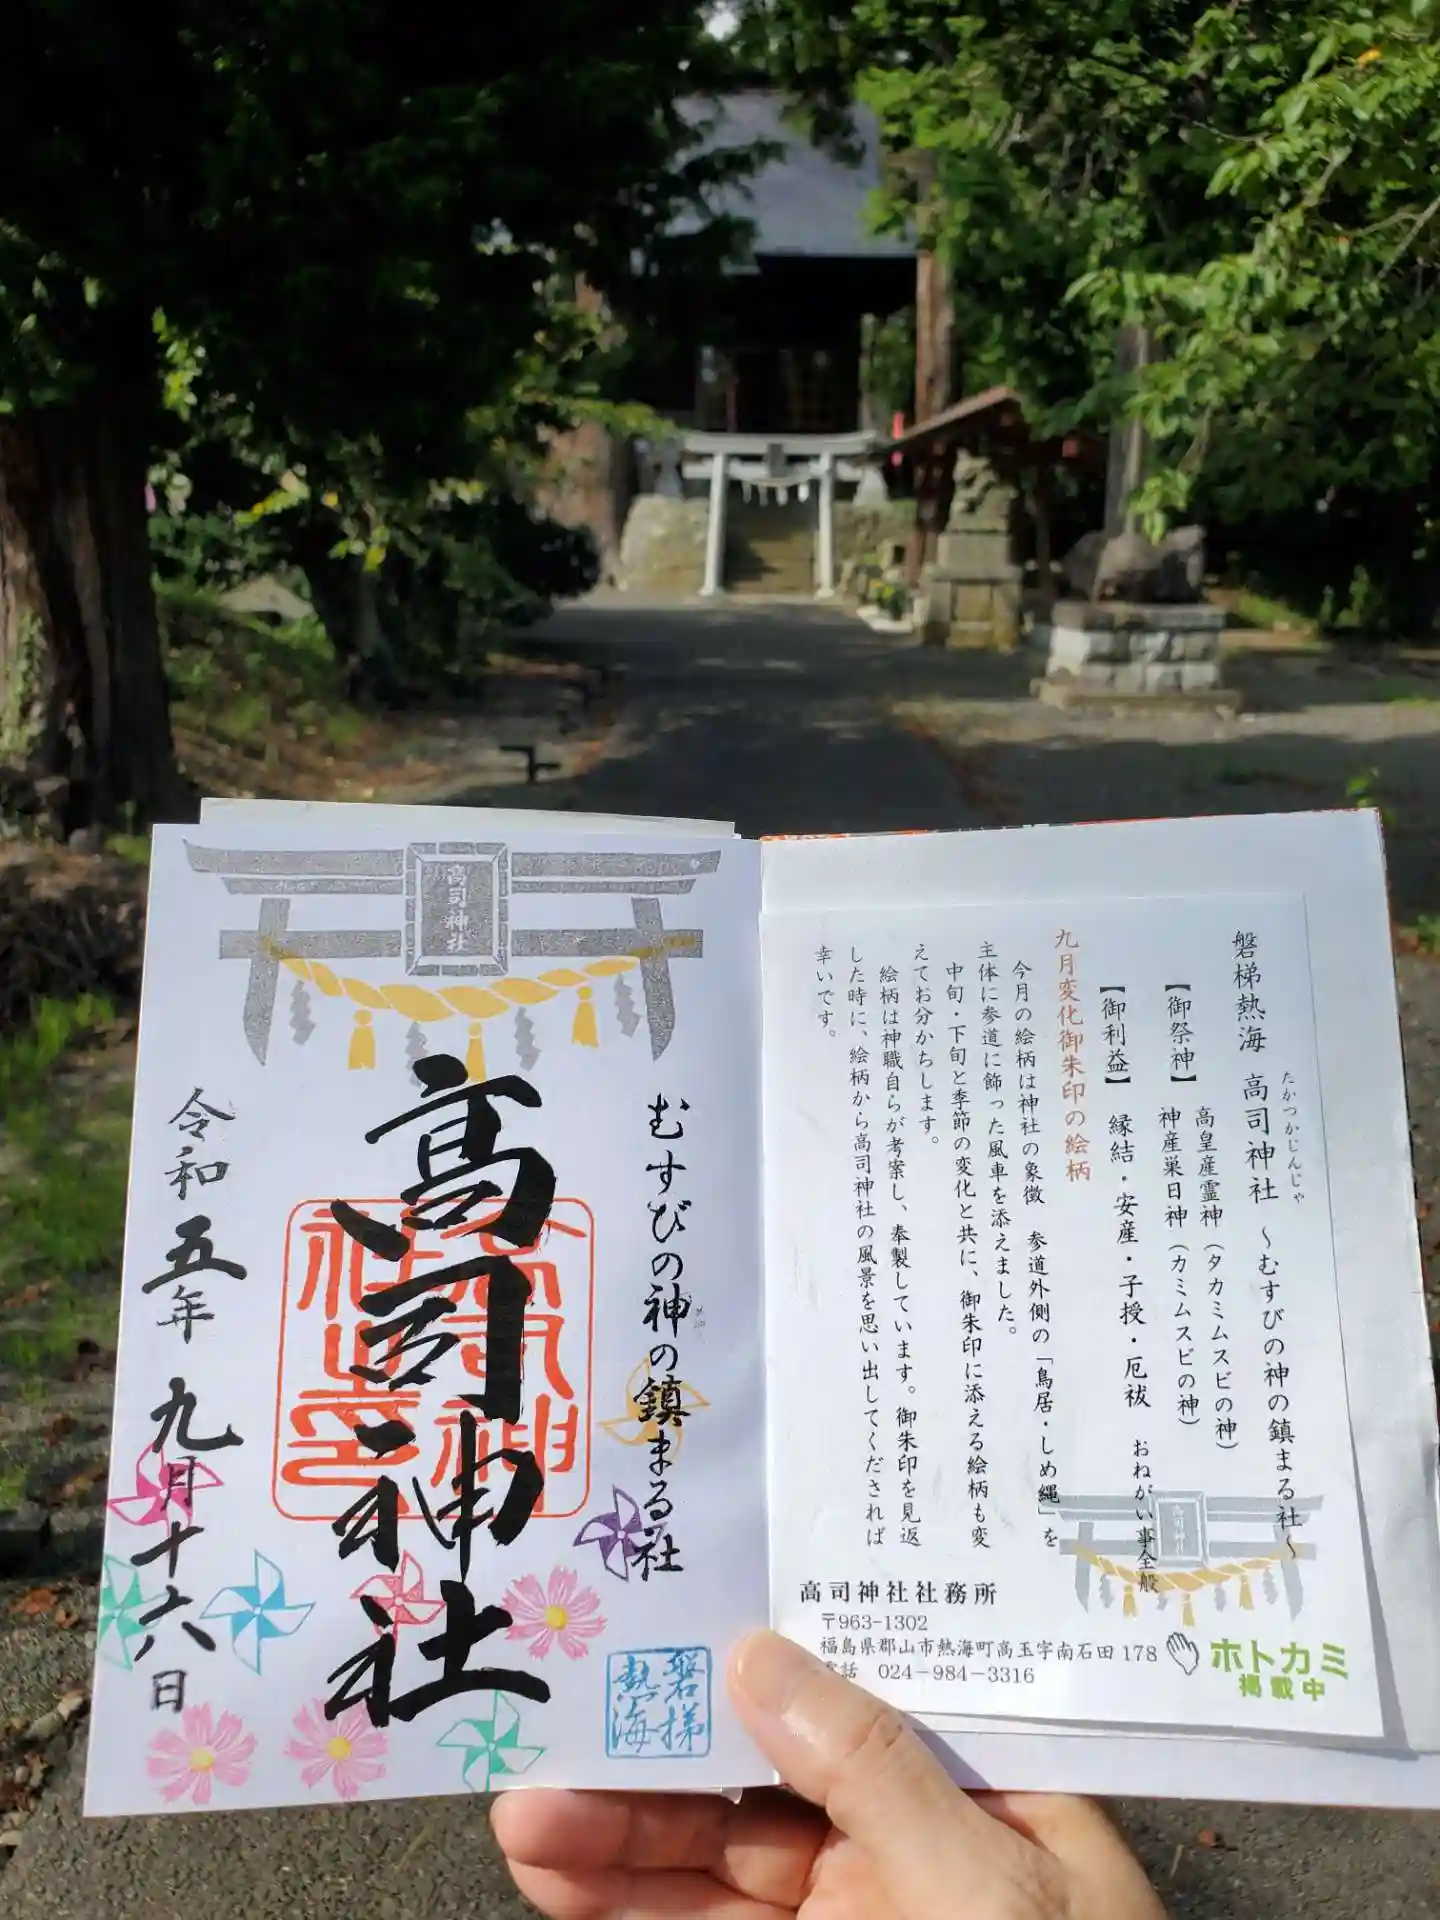 磐梯熱海 高司神社 ～むすびの神の鎮まる社～
たかつかじんじゃ
【御祭神】 高皇産霊神（タカミムスビの神）
神産巣日神（カミムスビの神）
【御利益】 縁結・安産・子授・厄祓 おねがい事全般
九月変化御朱印の絵柄
今月の絵柄は神社の象徴 参道外側の「鳥居・しめ縄」を
主体に参道に飾った風車を添えました。
中旬・下旬と季節の変化と共に、御朱印に添える絵柄も変
えてお分かちします。
絵柄は神職自らが考案し、奉製しています。御朱印を見返
した時に、絵柄から高司神社の風景を思い出してくだされば
幸いです。
高司神社
高司神社社務所
〒963-1302
福島県郡山市熱海町高玉字南石田 178
電話 024-984-3316
ホトカミ
掲載中
高司神社
むすびの神の鎮まる社
高司神社
高司神社之印
令和五年九月十六日
磐梯
熱海